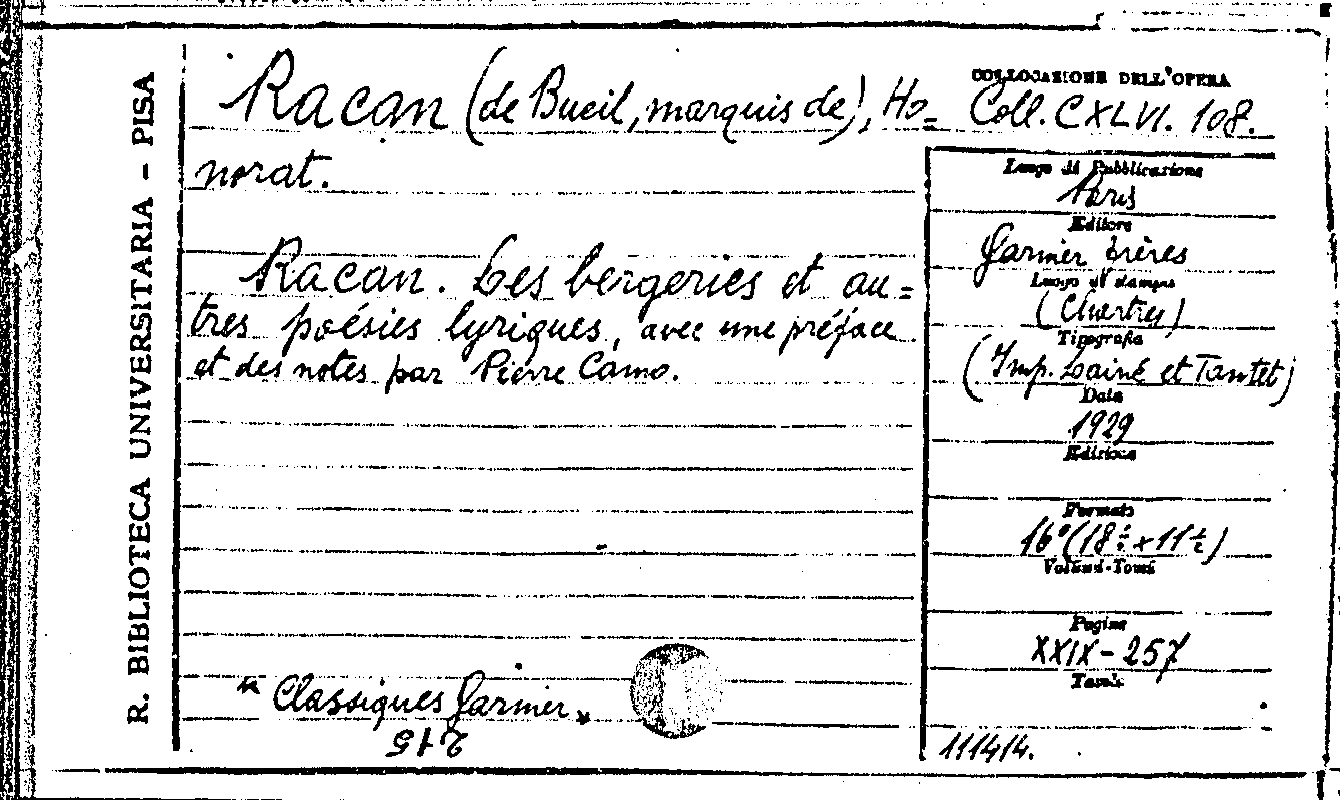 R. BIBLIOTECA UNIVERSITARIA - PISA
Racan (de Bueil, marquis de), Ho=
norat.
Racan. Les bergeries et au=
tres poésies lyriques, avec une préface
et des notes par Pierre Camo.
"Classiques Garnier"
COLLOCAZIONE DELL'OPERA
Coll. CXLVI. 108.
Luogo di Pubblicazione
Paris
Editore
Garnier frères
Luogo di stampa
(Chartres)
Tipografia
(Imp. Lainé et Tantet)
Data
1929
Edizione
Formato
16° (18 ½ x 11 ½)
Volumi-Tomi
Pagine
XXIX - 257
Tavole
111414.